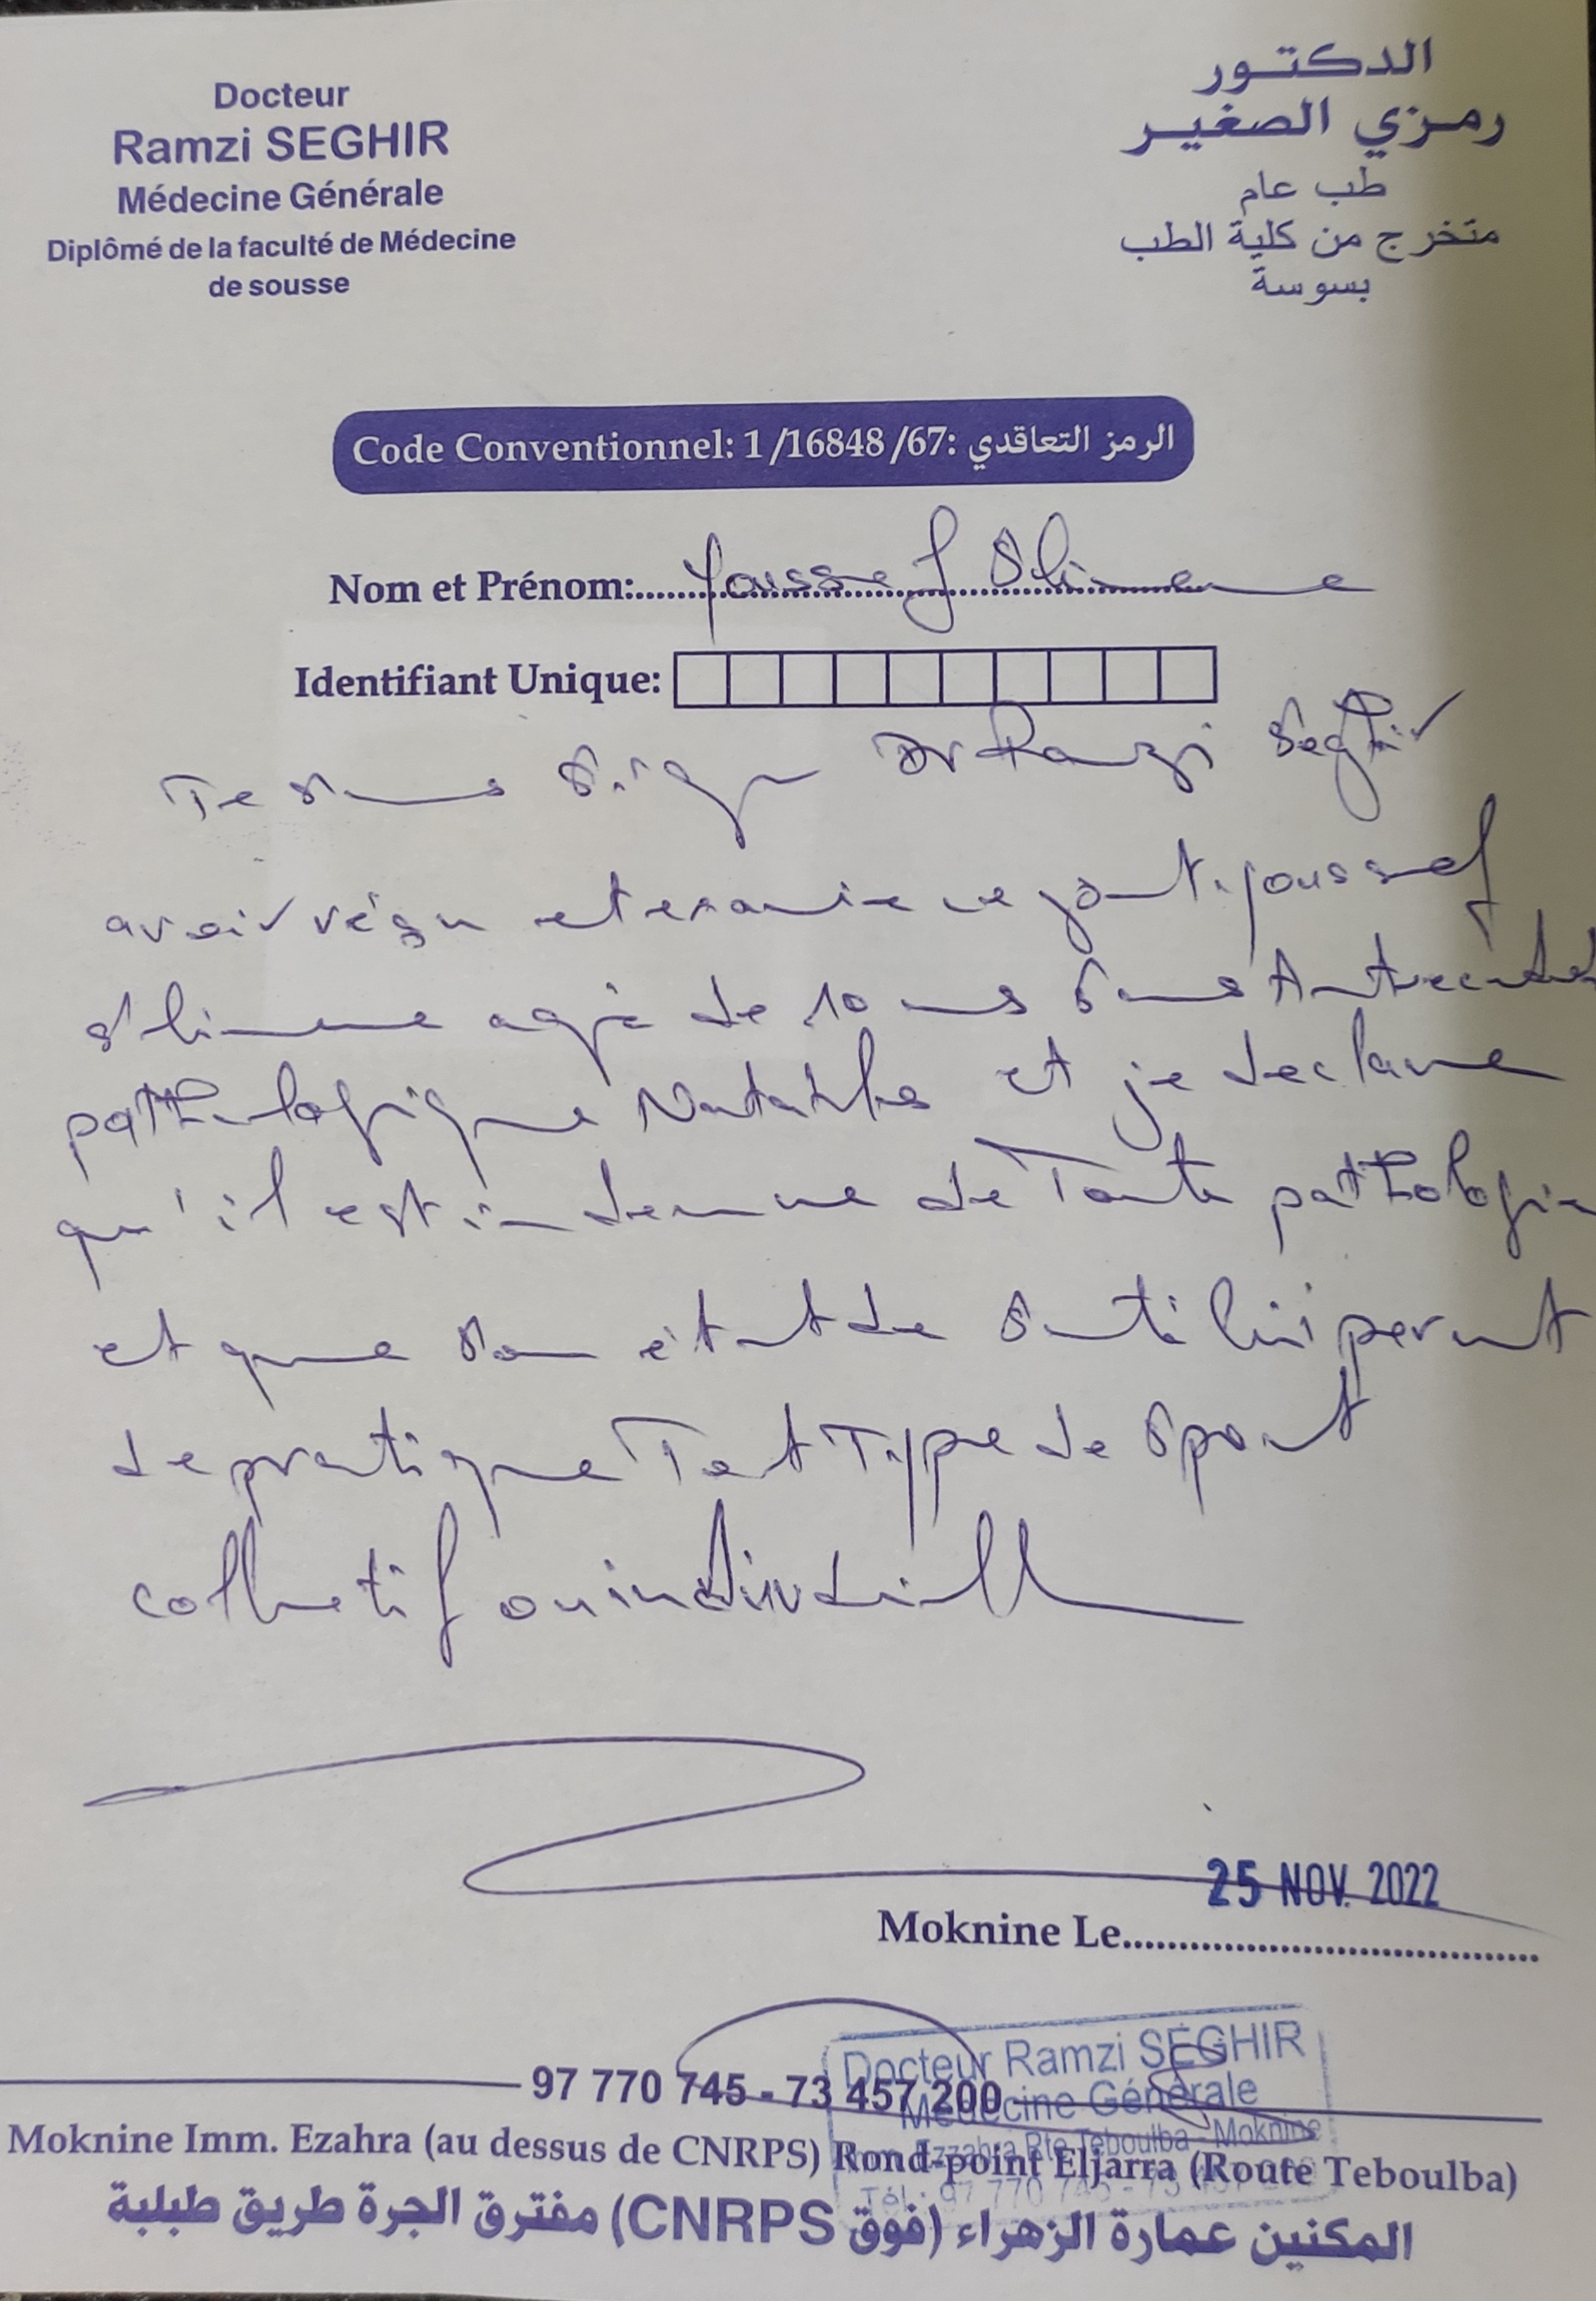 Docteur
Ramzi SEGHIR
Médecine Générale
Diplômé de la faculté de Médecine
de sousse
الدكتور
رمزي الصغير
طب عام
متخرج من كلية الطب
بسوسة
Code Conventionnel: 1/16848/67: الرمز التعاقدي
Nom et Prénom: Youssef Slimene
Identifiant Unique:
Je sous signe Dr Ramzi Seghir
avoir réçu et examine ce jour Youssef
Slimene agé de 10 ans sans Antecedent
pathologique Notables et je declare
qu'il est indemne de Toute pathologie
et que son état de santé lui permet
de pratique Tout Type de sport
collectif ou individuell
25 NOV. 2022
Moknine Le
97 770 745 - 73 457 200
Docteur Ramzi SEGHIR
Médecine Générale
Ezzahra Rte Teboulba - Moknine
Tél : 97 770 745 - 73
Moknine Imm. Ezahra (au dessus de CNRPS) Rond-point Eljarra (Route Teboulba)
المكنين عمارة الزهراء (فوق CNRPS) مفترق الجرة طريق طبلبة